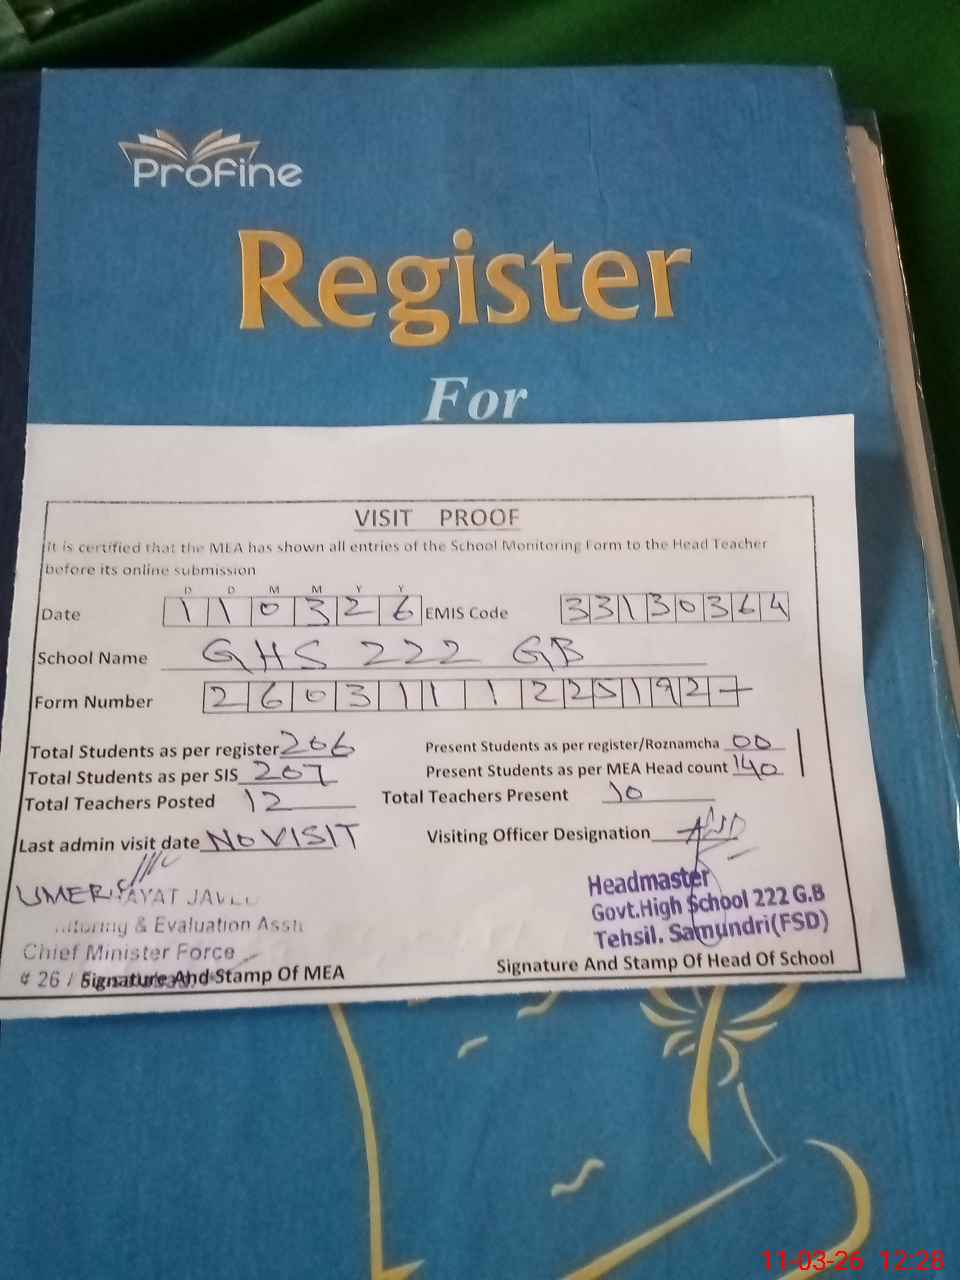 Profine
Register
For
VISIT PROOF
It is certified that the MEA has shown all entries of the School Monitoring Form to the Head Teacher
before its online submission
D D M M Y Y
Date 1 1 0 3 2 6 EMIS Code 3 3 1 3 0 3 6 4
School Name GHS 222 GB
Form Number 2 6 0 3 1 1 1 2 2 5 1 9 2
Total Students as per register 206 Present Students as per register/Roznamcha 00
Total Students as per SIS 207 Present Students as per MEA Head count 140
Total Teachers Posted 12 Total Teachers Present 10
Last admin visit date NO VISIT Visiting Officer Designation
UMER
& Evaluation
Chief Minister Force
# 26 /
Signature And Stamp Of MEA
Headmaster
Govt.High School 222 G.B
Tehsil. Samundri(FSD)
Signature And Stamp Of Head Of School
11-03-26 12:28